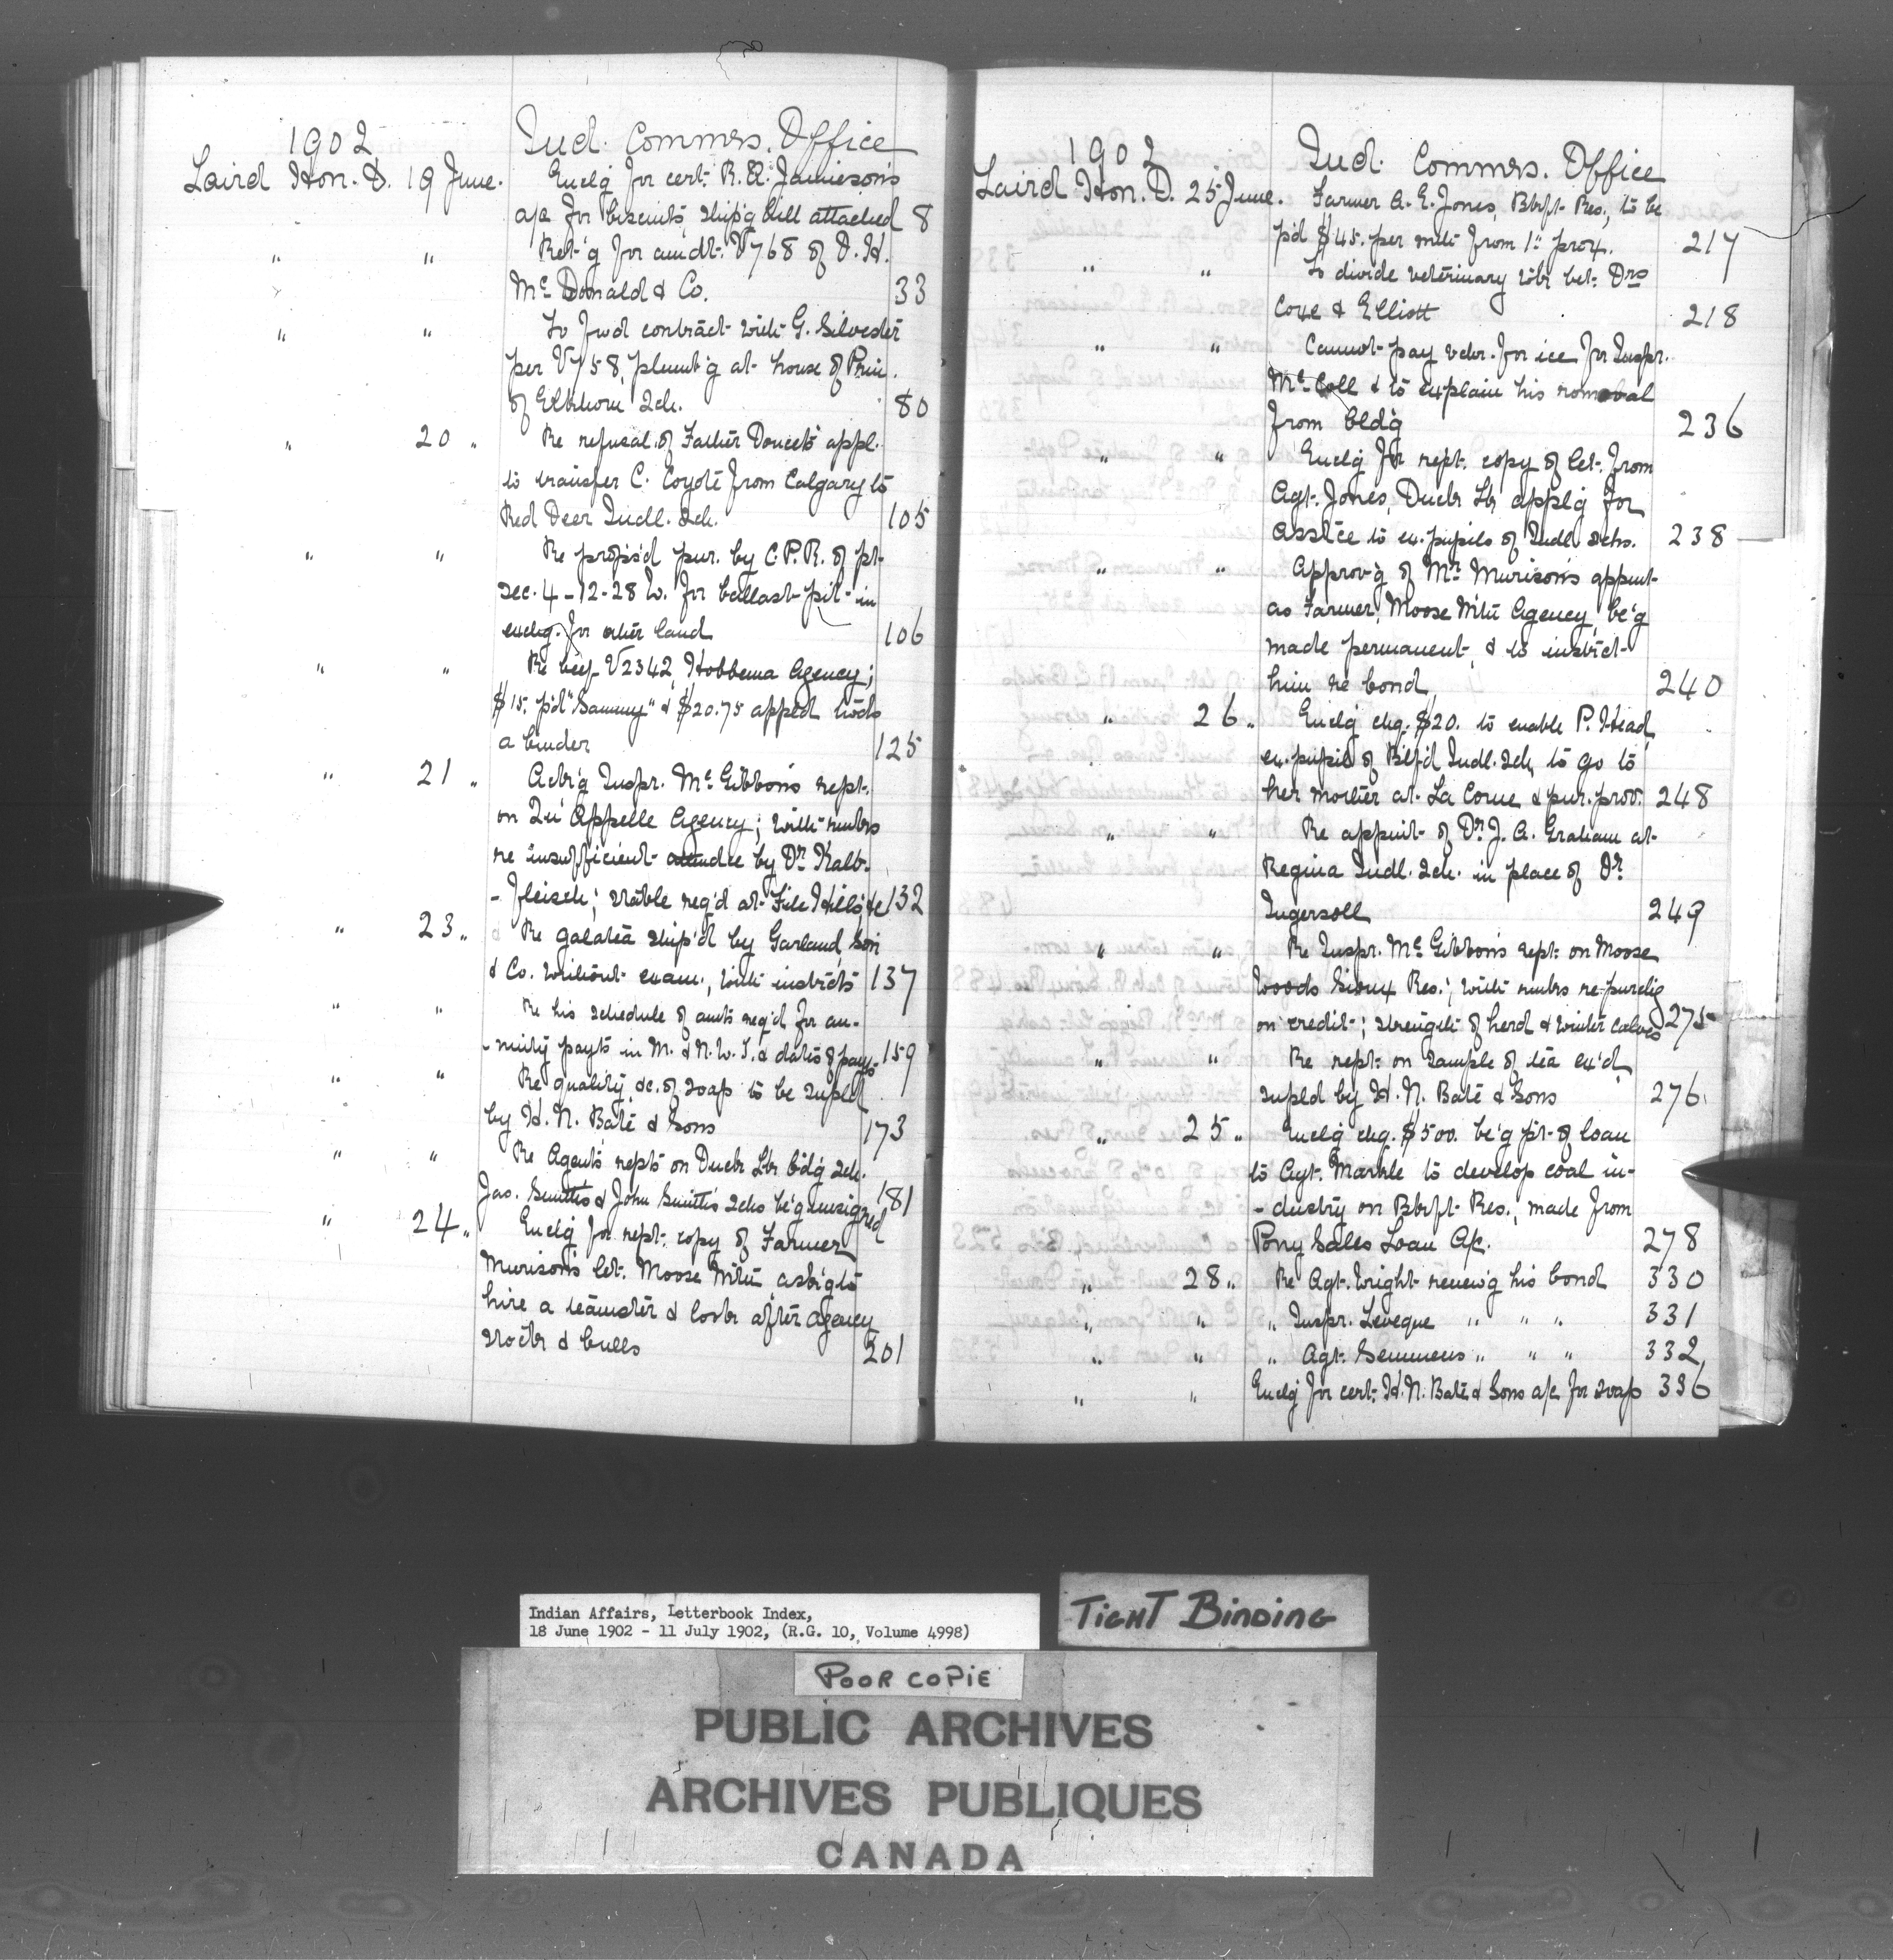 1902
Ind. Commrs. Office
Laird Hon. D. 19 June. Enclg for cert. R. R. Jamieson's
a/c for biscuits, ship'g bill attached 8
" " Ret'g for amdt. V768 of D. H.
McDonald & Co. 33
" " To fwd contract with G. Silvester
per V758, plumb'g at house of Prin.
of Elkhorn Sch. 80
" 20 " Re refusal of Father Doucet's appl.
to transfer C. Coyote from Calgary to
Red Deer Indl. Sch. 105
" " Re propos'd pur. by C.P.R. of pt.
Sec. 4-12-28 W. for ballast pit in
exchg. for other land 106
" " Re beef V2342, Hobbema Agency;
$15. p'd "Sammy" & $20.75 appld tow'ds
a binder 125
" 21 " Ack'g Inspr. McGibbon's rept.
on Qu'Appelle Agency; with rmks
re insufficient attendce by Dr Kalb-
-fleisch; stable req'd at File Hills &c 132
" 23 " Re galatea ship'd by Garland, Son
& Co. without exam., with instrcts 137
" " Re his schedule of amts req'd for an-
-nuity payts in M. & N.W.T. & dates of payts 159
" " Re quality &c. of soap to be supld
by H. N. Bate & Sons 173
" " Re Agent's repts on Duck Lk bdg sch.
Jas. Smith's & John Smith's schs be'g unsigned 181
" 24 " Enclg for rept. copy of Farmer
Murison's let. Moose Mtn ask'g to
hire a teamster & look after Agency
stock & bulls 201
1902
Ind. Commrs. Office
Laird Hon. D. 25 June. Farmer A. E. Jones, Blkft Res., to be
p'd $45. per mth from 1st prox. 217
" " To divide veterinary wk bet. Drs
Coxe & Elliott 218
" " Cannot pay vchr. for ice for Inspr.
McColl & to explain his removal
from bldg 236
" " Enclg for rept. copy of let. from
Agt. Jones, Duck Lk applg for
assice to ex. pupils of Indl. schs. 238
" " Approv'g of Mr Murison's appmt
as Farmer, Moose Mtn Agency, be'g
made permanent, & to instrct
him re bond 240
" 26 " Enclg chq. $20. to enable P. Head
ex. pupil of Btlf'd Indl. Sch. to go to
her mother at La Corne & pur. prov. 248
" " Re appmt of Dr J. A. Graham at
Regina Indl. Sch. in place of Dr
Ingersoll 249
" " Re Inspr. McGibbon's rept. on Moose
Woods Sioux Res.; with rmks re purchg
on credit; strength of herd & winter calves 275
" " Re rept. on sample of tea ex'd
supld by H. N. Bate & Sons 276
" 25 " Enclg chq. $500. be'g pt. of loan
to Agt. Markle to develop coal in-
-dustry on Blkft Res., made from
Pony Sales Loan A/c. 278
" 28 " Re Agt. Wright renew'g his bond 330
" " " Inspr. Leveque " " " 331
" " " Agt. Semmens " " " 332
" " Enclg for cert. H. N. Bate & Sons a/c for soap 336
Indian Affairs, Letterbook Index,
18 June 1902 - 11 July 1902, (R.G. 10, Volume 4998)
TIGHT BINDING
POOR COPIE
PUBLIC ARCHIVES
ARCHIVES PUBLIQUES
CANADA